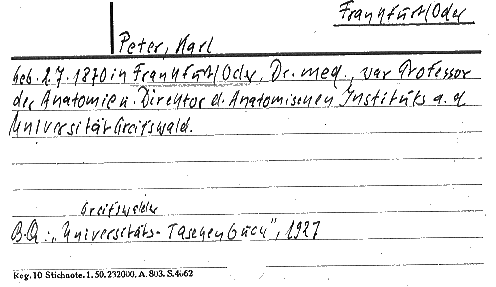 Frankfurt/Oder
Peter, Karl
geb. 2.7.1870 in Frankfurt/Oder, Dr. med., war Professor
der Anatomie u. Direktor d. Anatomischen Instituts a. d.
Universität Greifswald.
Greifswalder
B.Q.: „Universitäts-Taschenbuch", 1927
Reg. 10 Stichnote. 1. 50. 232000. A. 803. S. 4062